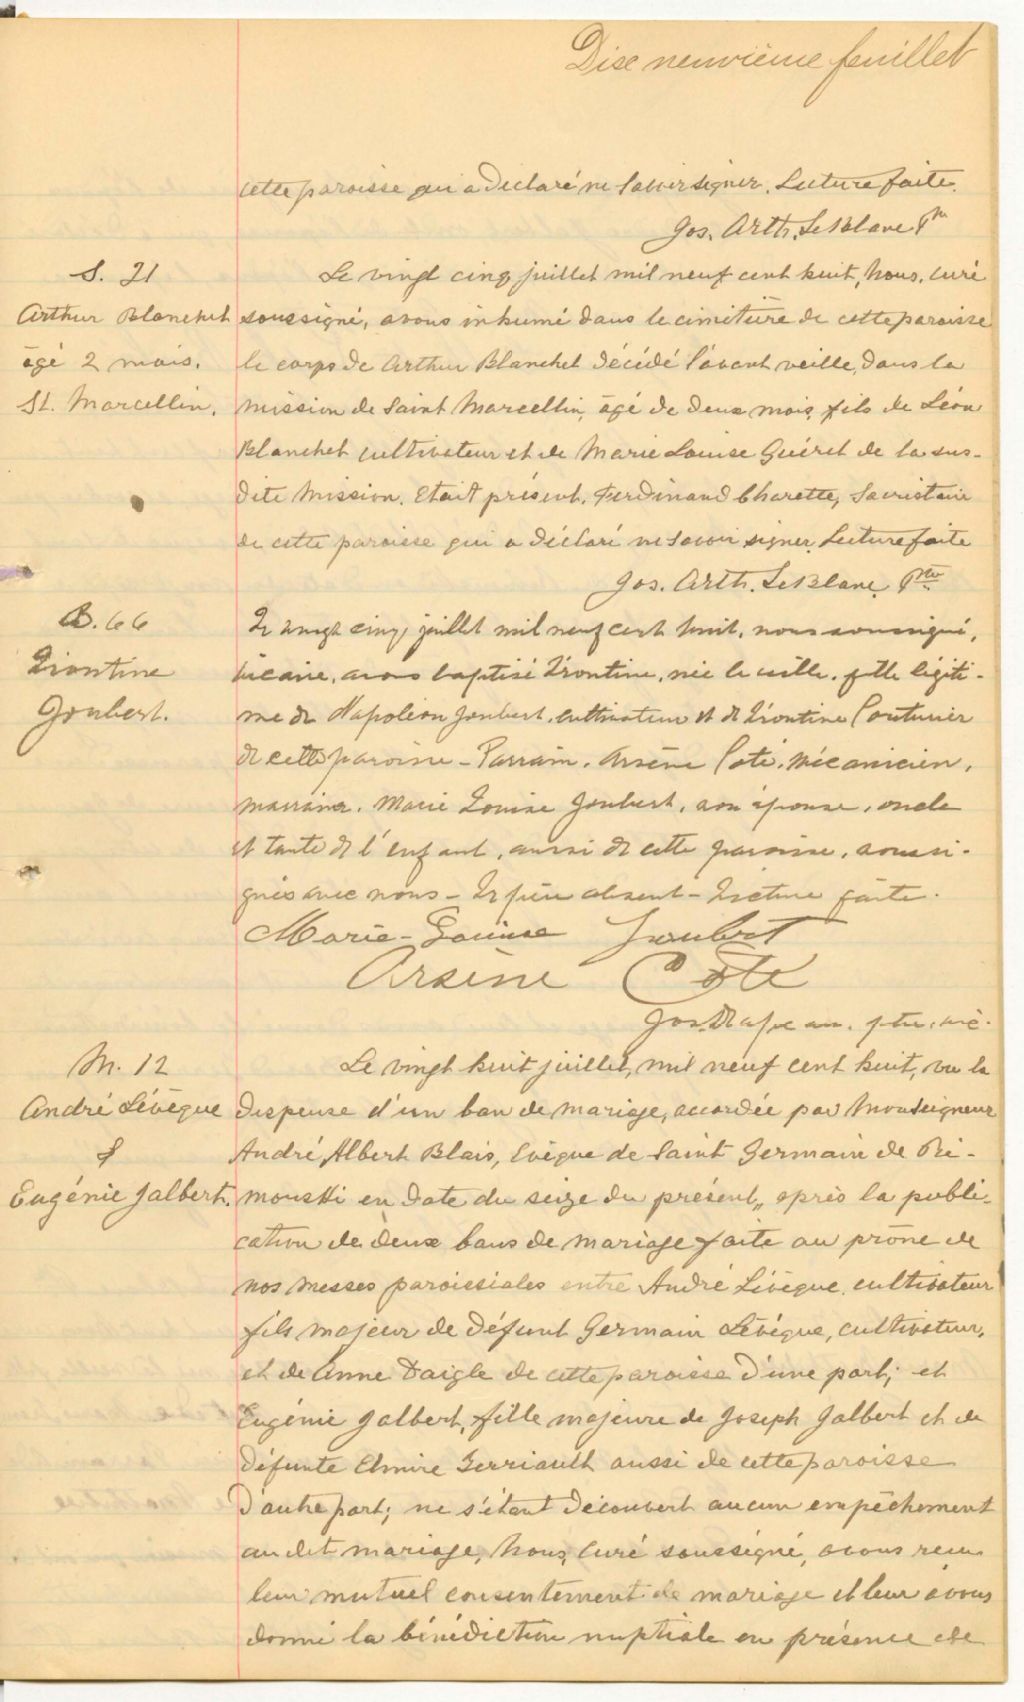 Dixe neuvième feuillet
cette paroisse qui a déclaré ne savoir signer. Lecture faite.
Jos. Arth. LeBlanc Ptre
S. 21
Arthur Blanchet
âgé 2 mois.
St. Marcellin.
Le vingt cinq juillet mil neuf cent huit, Nous, curé
soussigné, avons inhumé dans le cimitière de cette paroisse
le corps de Arthur Blanchet décédé l'avant veille, dans la
mission de Saint Marcellin, âgé de deux mois, fils de Léon
Blanchet cultivateur et de Marie Louise Guéret de la sus-
dite Mission. Etait présent, Ferdinand Charette, Sacristain
de cette paroisse qui a déclaré ne savoir signer. Lecture faite
Jos. Arth. LeBlanc. Ptre
B. 66
Léontine
Joubert.
Le vingt cinq juillet mil neuf cent huit, nous soussigné,
vicaire, avons baptisé Léontine, née la veille, fille légiti-
me de Napoléon Joubert, cultivateur et de Léontine Couturier
de cette paroisse - Parrain, Arsène Coté, mécanicien,
marraine, Marie Louise Joubert, son épouse, oncle
et tante de l'enfant, aussi de cette paroisse, soussi-
gnés avec nous - Le père absent - Lecture faite.
Marie-Louise Joubert
Arsène Côté
Jos. ptre. vic.
M. 12
André Lévêque
&
Eugénie Jalbert.
Le vingt huit juillet, mil neuf cent huit, vu la
dispense d'un ban de mariage, accordée par Monseigneur
André Albert Blais, Evêque de Saint Germain de Ri-
mouski en date du seize du présent, après la publi-
cation de deux bans de mariage faite au prône de
nos messes paroissiales entre André Lévêque, cultivateur
fils majeur de défunt Germain Lévêque, cultivateur,
et de Anne Daigle de cette paroisse d'une part; et
Eugénie Jalbert, fille majeure de Joseph Jalbert et de
défunte Elmire Gerriault aussi de cette paroisse
d'autre part; ne s'étant découvert aucun empêchement
au dit mariage, Nous, curé soussigné, avons reçu
leur mutuel consentement de mariage et leur avons
donné la bénédiction nuptiale en présence de